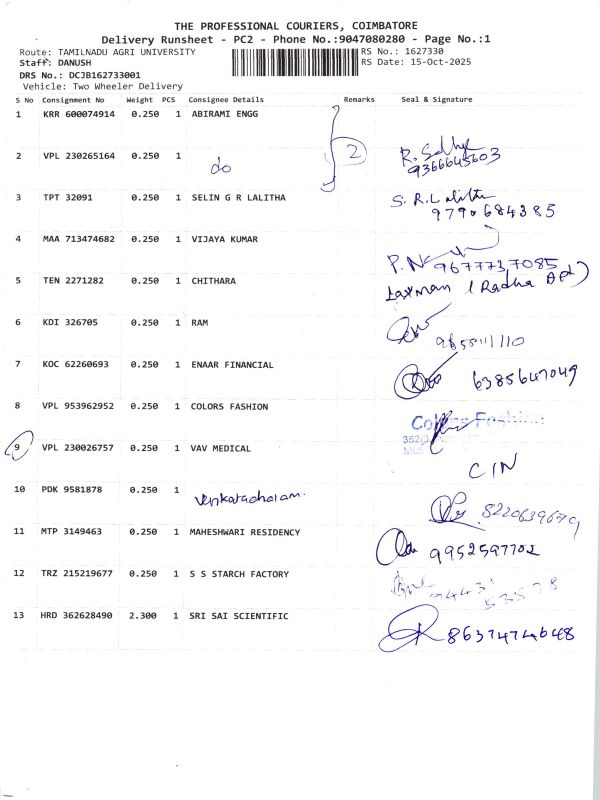 THE PROFESSIONAL COURIERS, COIMBATORE
Delivery Runsheet - PC2 - Phone No.:9047080280 - Page No.:1
Route: TAMILNADU AGRI UNIVERSITY RS No.: 1627330
Staff: DANUSH RS Date: 15-Oct-2025
DRS No.: DCJB162733001
Vehicle: Two Wheeler Delivery
S No Consignment No Weight PCS Consignee Details Remarks Seal & Signature
1 KRR 600074914 0.250 1 ABIRAMI ENGG
2 VPL 230265164 0.250 1 do 2 9366645603
3 TPT 32091 0.250 1 SELIN G R LALITHA S. R. Lalitha
9790684385
4 MAA 713474682 0.250 1 VIJAYA KUMAR
9677737085
5 TEN 2271282 0.250 1 CHITHARA Laxman (Radha Apt)
6 KDI 326705 0.250 1 RAM
7 KOC 62260693 0.250 1 ENAAR FINANCIAL 6385647049
8 VPL 953962952 0.250 1 COLORS FASHION Colors Fashion
9 VPL 230026757 0.250 1 VAV MEDICAL
C/N
10 PDK 9581878 0.250 1 Venkatachalam. 8220639679
11 MTP 3149463 0.250 1 MAHESHWARI RESIDENCY 9952597702
12 TRZ 215219677 0.250 1 S S STARCH FACTORY
94431
53578
13 HRD 362628490 2.300 1 SRI SAI SCIENTIFIC 8637474648